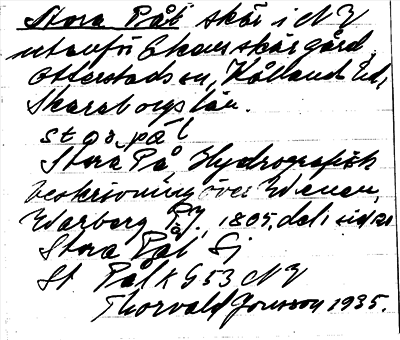 Stora Pål skär i N V
utanför Ekens skärgård,
Otterstads sn, Kållands hd,
Skaraborgs län.
st o2. på l
Stora På, Hydrografisk
beskrivning över Wenern,
Warberg, 1895, del, sidan
Stora Pål Sj
St Pål k G 53 N V
Thorvald Jonsson 1935.